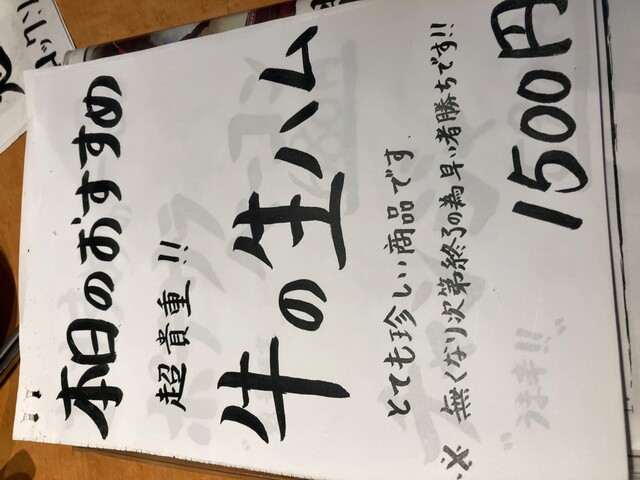 本日のおすすめ
超貴重!!
牛の生ハム
とても珍しい商品です.
※ 無くなり次第終了の為早い者勝ちです!!
1500円